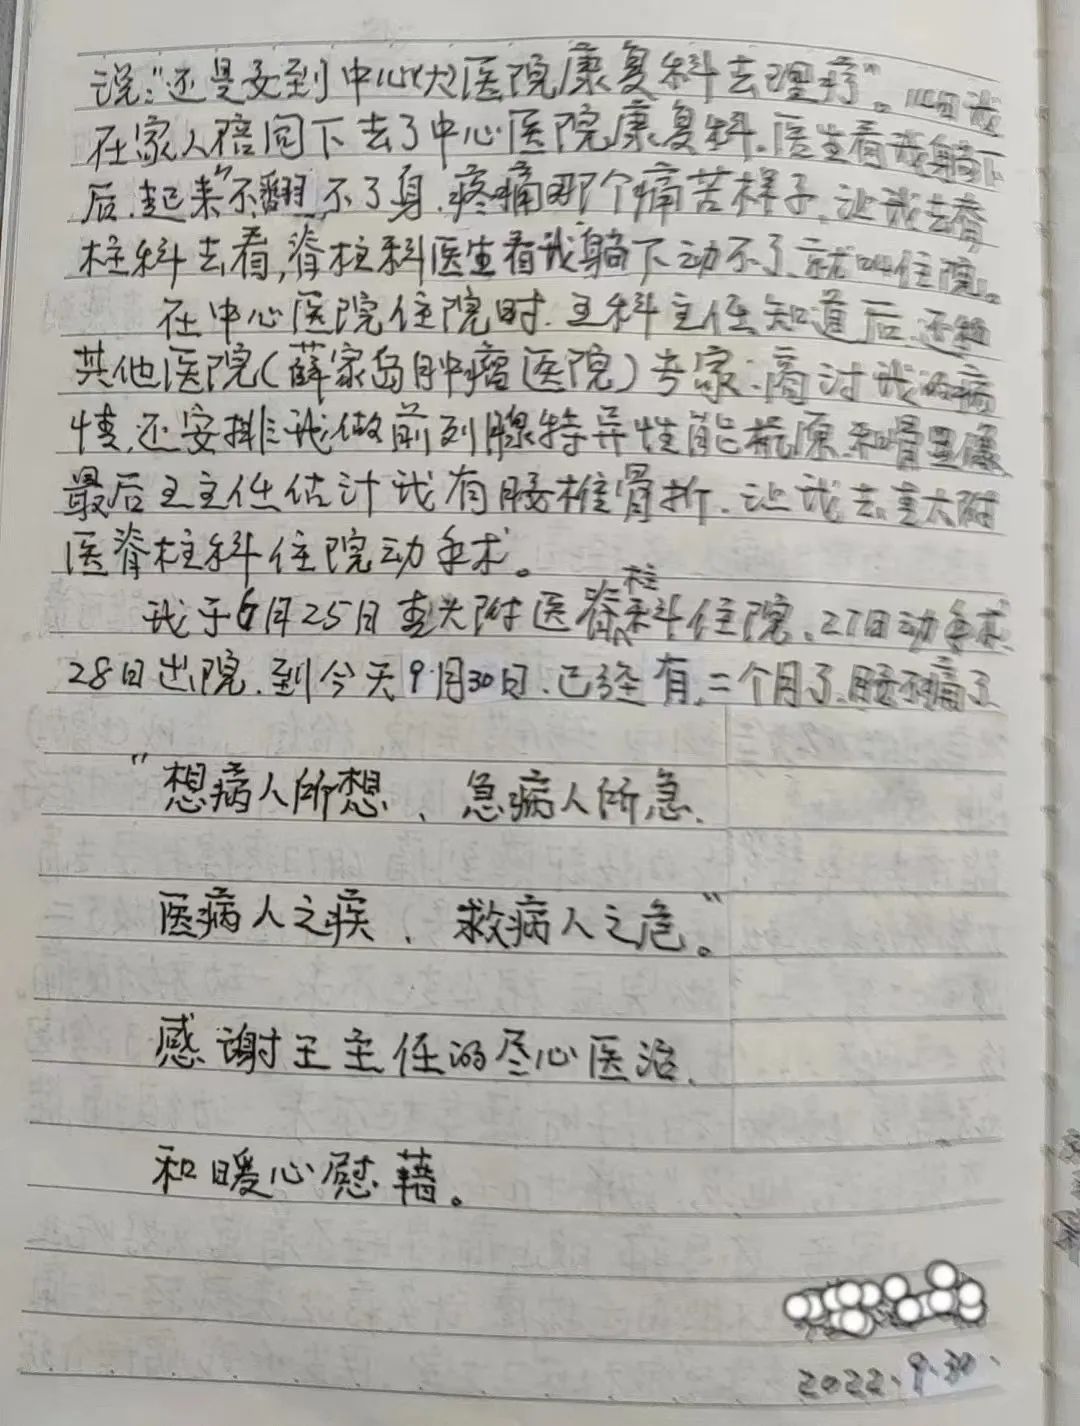 说:“还是要到中心(大)医院康复科去理疗”。14日我
在家人陪同下去了中心医院康复科.医生看我躺下
后.起来”不翻不了身.疼痛那个痛苦样子.让我去脊
柱科去看,脊柱科医生看我躺下动不了.就叫住院。
在中心医院住院时.王科主任知道后.还和
其他医院(薛家岛肿瘤医院)专家.商讨我的病
情.还安排我做前列腺特异性能抗原.和骨显像
最后王主任估计我有腰椎骨折.让我去青大附
医脊柱科住院动手术。
我于6月25日青大附医脊柱科住院、27日动手术
28日出院.到今天9月30日.已经有.二个月了.腰不痛了
“想病人所想、急病人所急.
医病人之疾、救病人之危。”
感谢王主任的尽心医治.
和暖心慰藉。
2022.9.30.